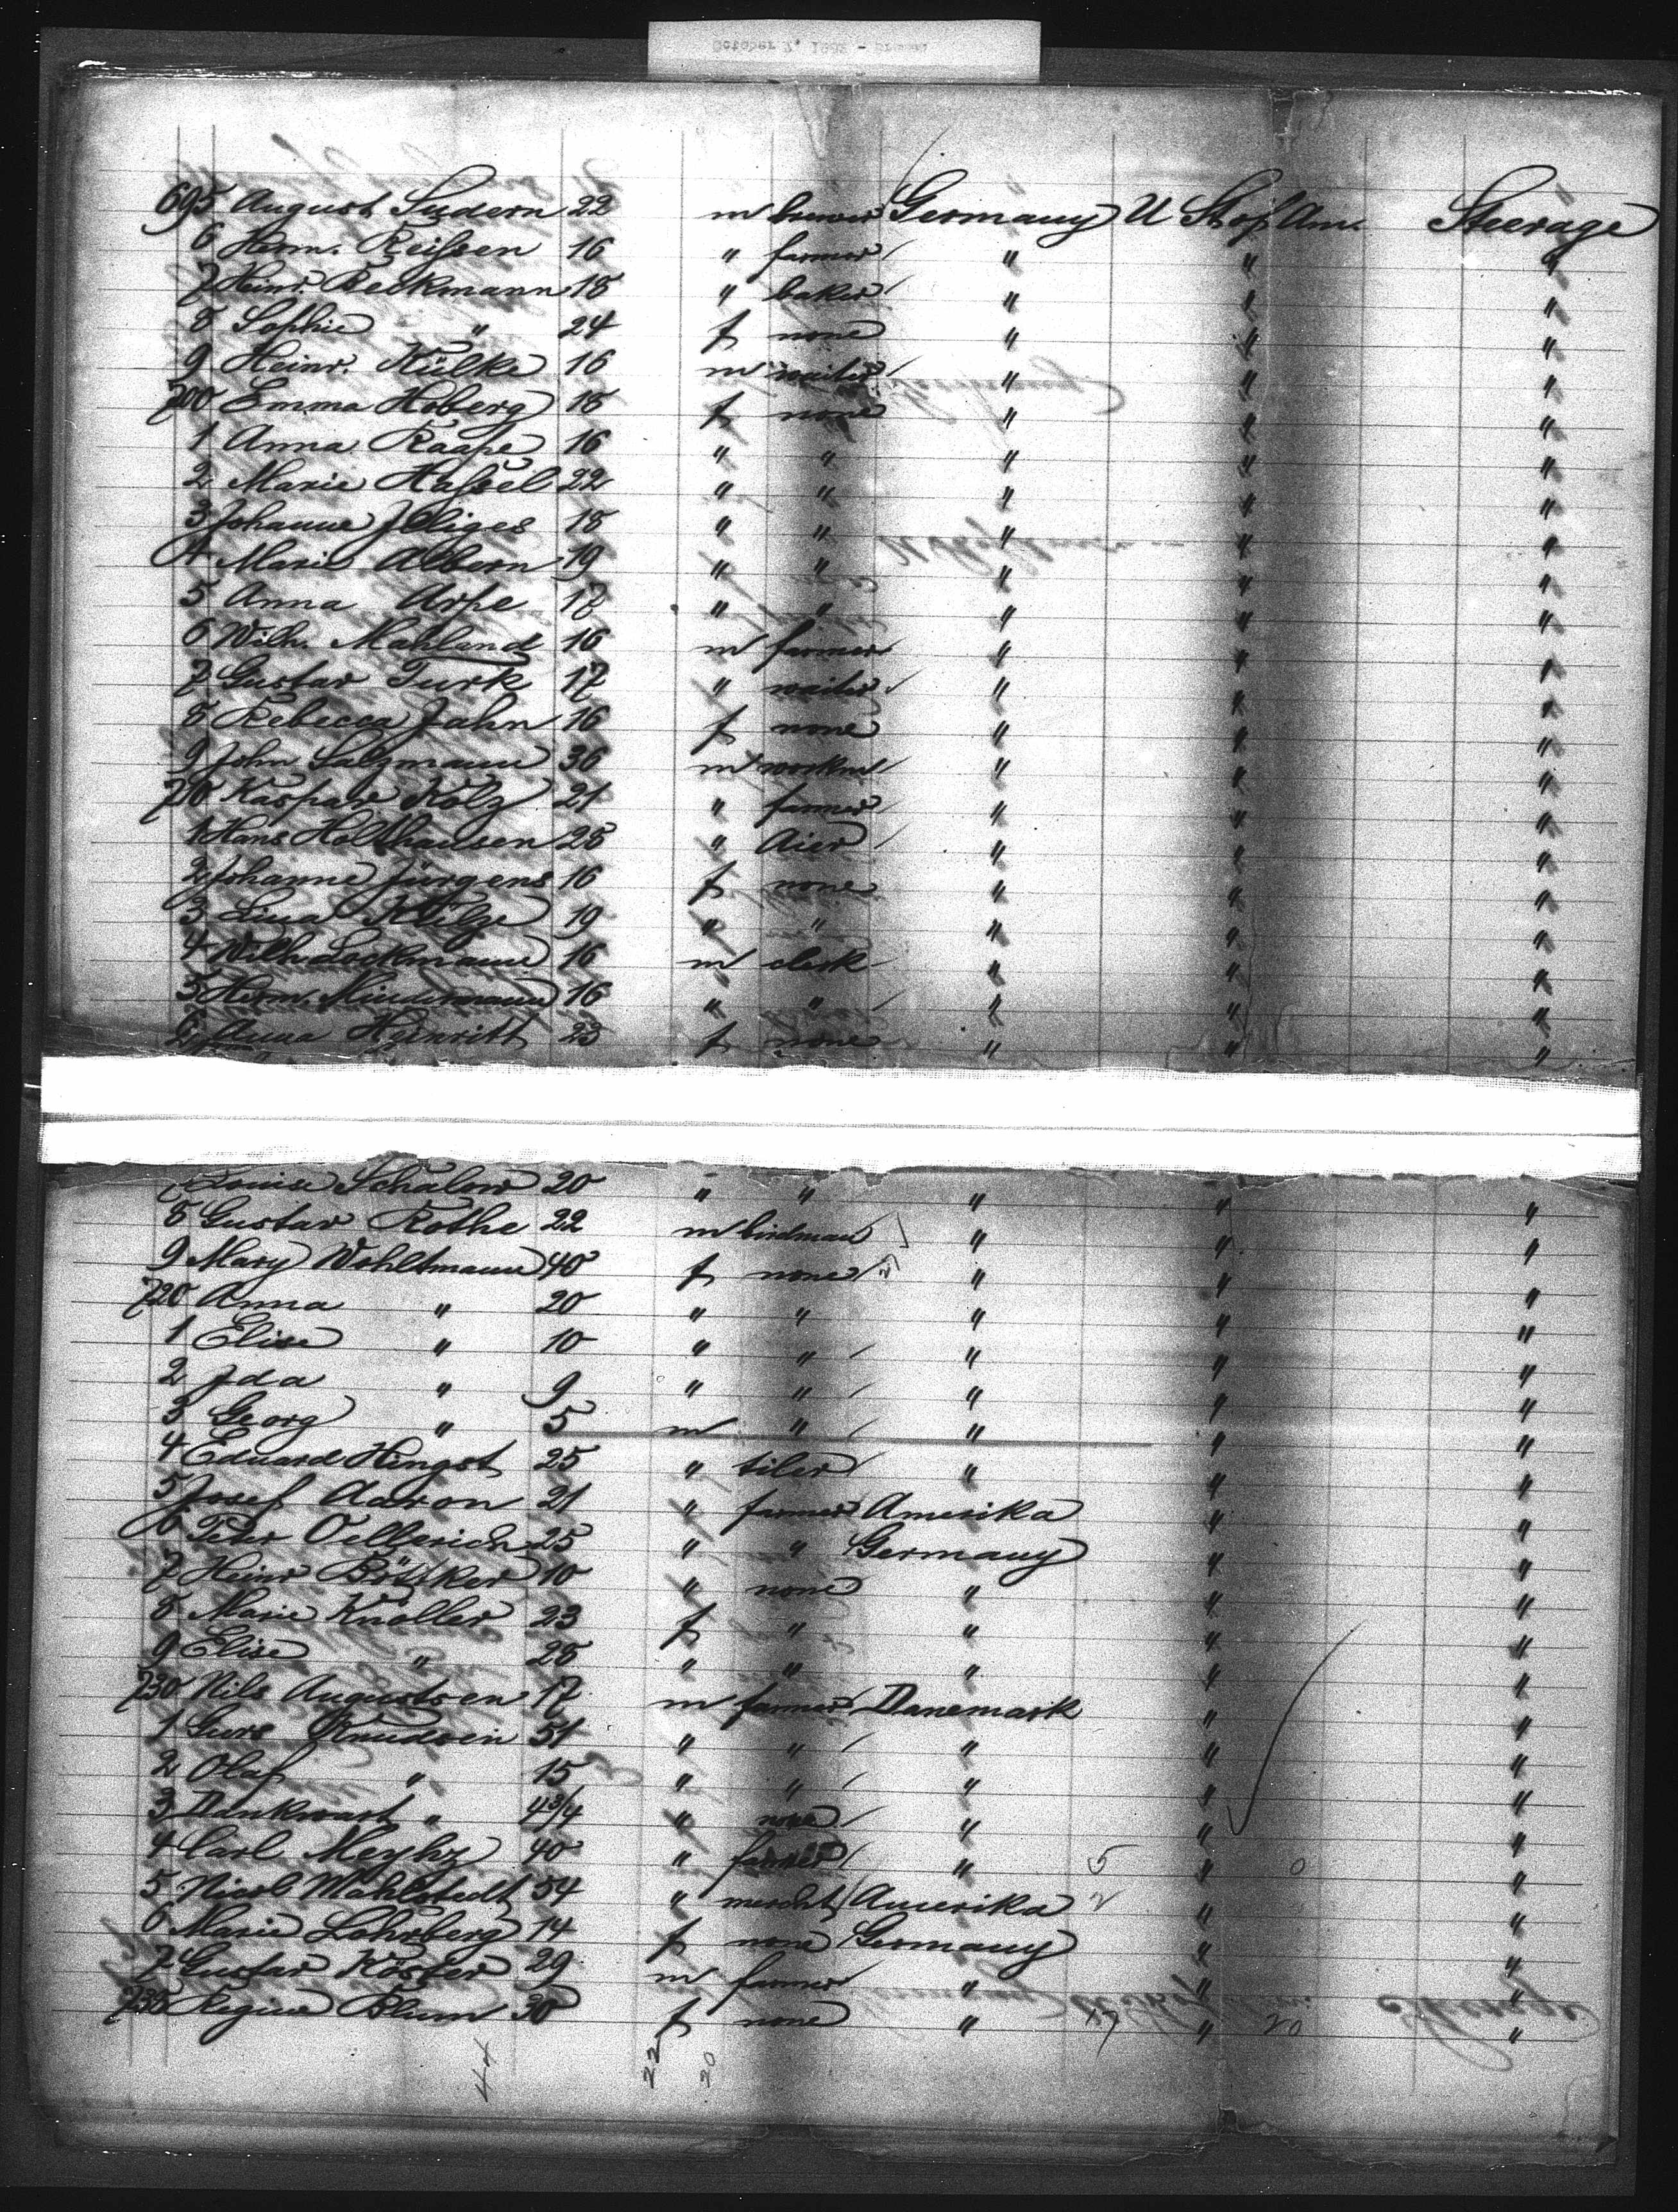 695 August Sudern 22 m brewer Germany U St of Am. Steerage
6 Herm. Reissen 16 " farmer " " "
7 Heinr. Beckmann 18 " baker " " "
8 Sophie " 24 f none " " "
9 Heinr. Külke 16 m waiter " " "
700 Emma Hoberg 18 f none " " "
1 Anna Raape 16 " " " " "
2 Marie Hassel 22 " " " " "
3 Johanne Jlliges 18 " " " " "
4 Marie Albern 19 " " " " "
5 Anna Arpe 17 " " " " "
6 Wilh. Mahland 16 m farmer " " "
7 Gustav Turk 17 " waiter " " "
8 Rebecca Jahn 16 f none " " "
9 John Salzmann 36 m workm " " "
710 Kaspar Kolz 21 " farmer " " "
1 Hans Holthausen 28 " " " "
2 Johanne Jürgens 16 f none " " "
3 Lina 19 " " " " "
4 Wilh. Lockmann 16 m clerk " " "
5 Herm. Mindermann 16 " " " " "
6 Anna Heinritt 23 f none " " "
7 Louise Schalow 20 " " " " "
8 Gustav Rothe 22 m birdman " " "
9 Mary Wohltmann 40 f none " " "
720 Anna " 20 " " " " "
1 Elise " 10 " " " " "
2 Jda " 9 " " " " "
3 Georg " 5 m " " " "
4 Eduard Hingst 25 " tiler " " "
5 Josef Aaron 21 " farmer Amerika " "
6 Peter Oellerich 25 " " Germany " "
7 Heinr Böttker 10 " none " " "
8 Marie Knoller 23 f " " " "
9 Elise " 28 " " " " "
730 Nils Augustsen 17 m farmer Danemark " "
1 Knudsen 51 " " " " "
2 Olaf " 15 " " " " "
3 Dankwart " 4 3/4 " none " " "
4 Carl 40 " farmer " 5 " 0 "
5 Nicol Mahlstedt 54 " mercht Amerika 2 " "
6 Marie Lohrberg 14 f none Germany " "
7 Gustav Köster 29 m farmer " " "
738 Regine Blum 30 f none " 17 " 20 "
44 22 20